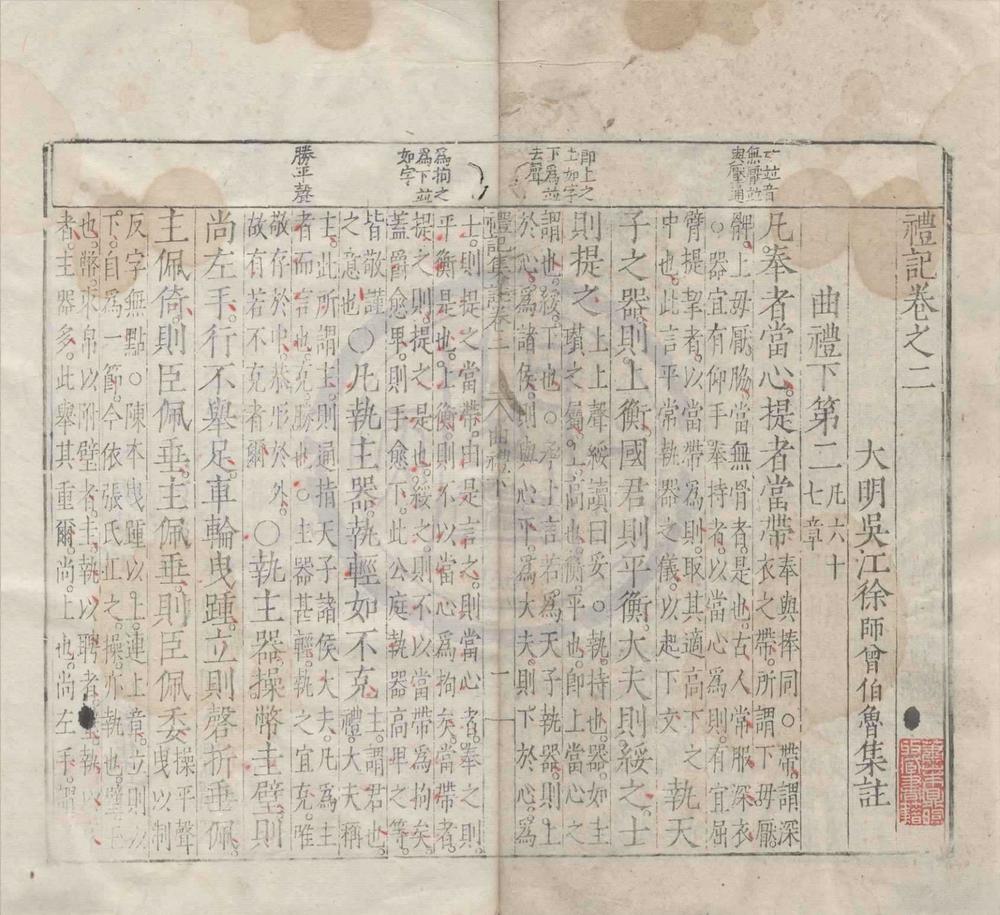 亡並音
無厭並
與壓通
即上之
上如字
下為並
去聲
禮記卷之二
大明吳江徐師曾伯魯集註
曲禮下第二凡六十
七章
凡奉者當心。提者當帶奉與捧同○帶謂深
衣之帶。所謂下毋厭
髀。上毋厭脇。當無骨者是也。古人常服深衣
○器宜有仰手奉持者。以當心為則。有宜屈
臂提挈者。以當帶為則。取其適高下之
中也。此言平常執器之儀。以起下文
執天
子之器。則上衡國君則平衡。大夫則綏之。士
則提之上上聲綏讀曰妥○執持也。器。如圭
璜之屬。上高也。衡。平也。即上當心之
謂也。綏。下也○承上言若為天子執器。則上
於心。為諸侯。則與心平。為大夫。則下於心。為
禮記集註卷二 曲禮下 一
為拘之
為下並
如字
勝平聲
士。則提之當帶。由是言之。則當心者。奉之。則
平衡是也。上衡則不以當心為拘矣。當帶者。
提之。則提之是也。綏之。則不以當帶為拘矣
蓋爵愈卑。則手愈下。此公庭執器高卑之等。
皆敬謹
之意也
○凡執主器。執輕如不克。主。謂君也。
禮大夫稱
主。此所謂主。則通指天子諸侯大夫。凡為主
者而言也。克。勝也。○主器甚輕。執之宜克。唯
敬存於中。恭形於外。
故有若不克者爾
○執主器。操幣圭璧。則
尚左手。行不舉足。車輪曳踵。立則磬折垂佩。
主佩倚。則臣佩垂。主佩垂。則臣佩委操平聲
曳以制
反字無點。○陳本曳踵以上。連上章。立則以
下。自為一節。今依張氏正之。操亦執也。璧玉
也。幣。束帛以附璧者。圭執以聘者。璧執以
者。主器多。此舉其重爾。尚。上也。尚左手。謂